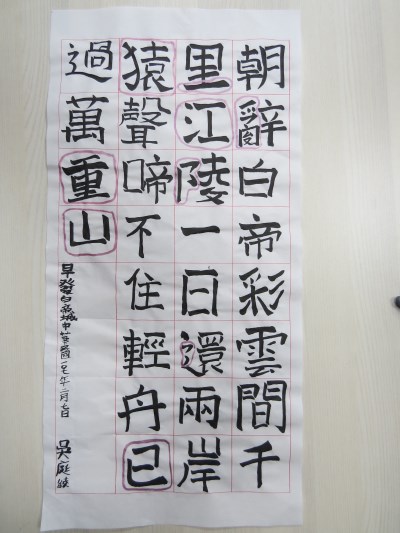 朝辭白帝彩雲間千
里江陵一日還兩岸
猿聲啼不住輕舟已
過萬重山
早發白帝城
吳庭